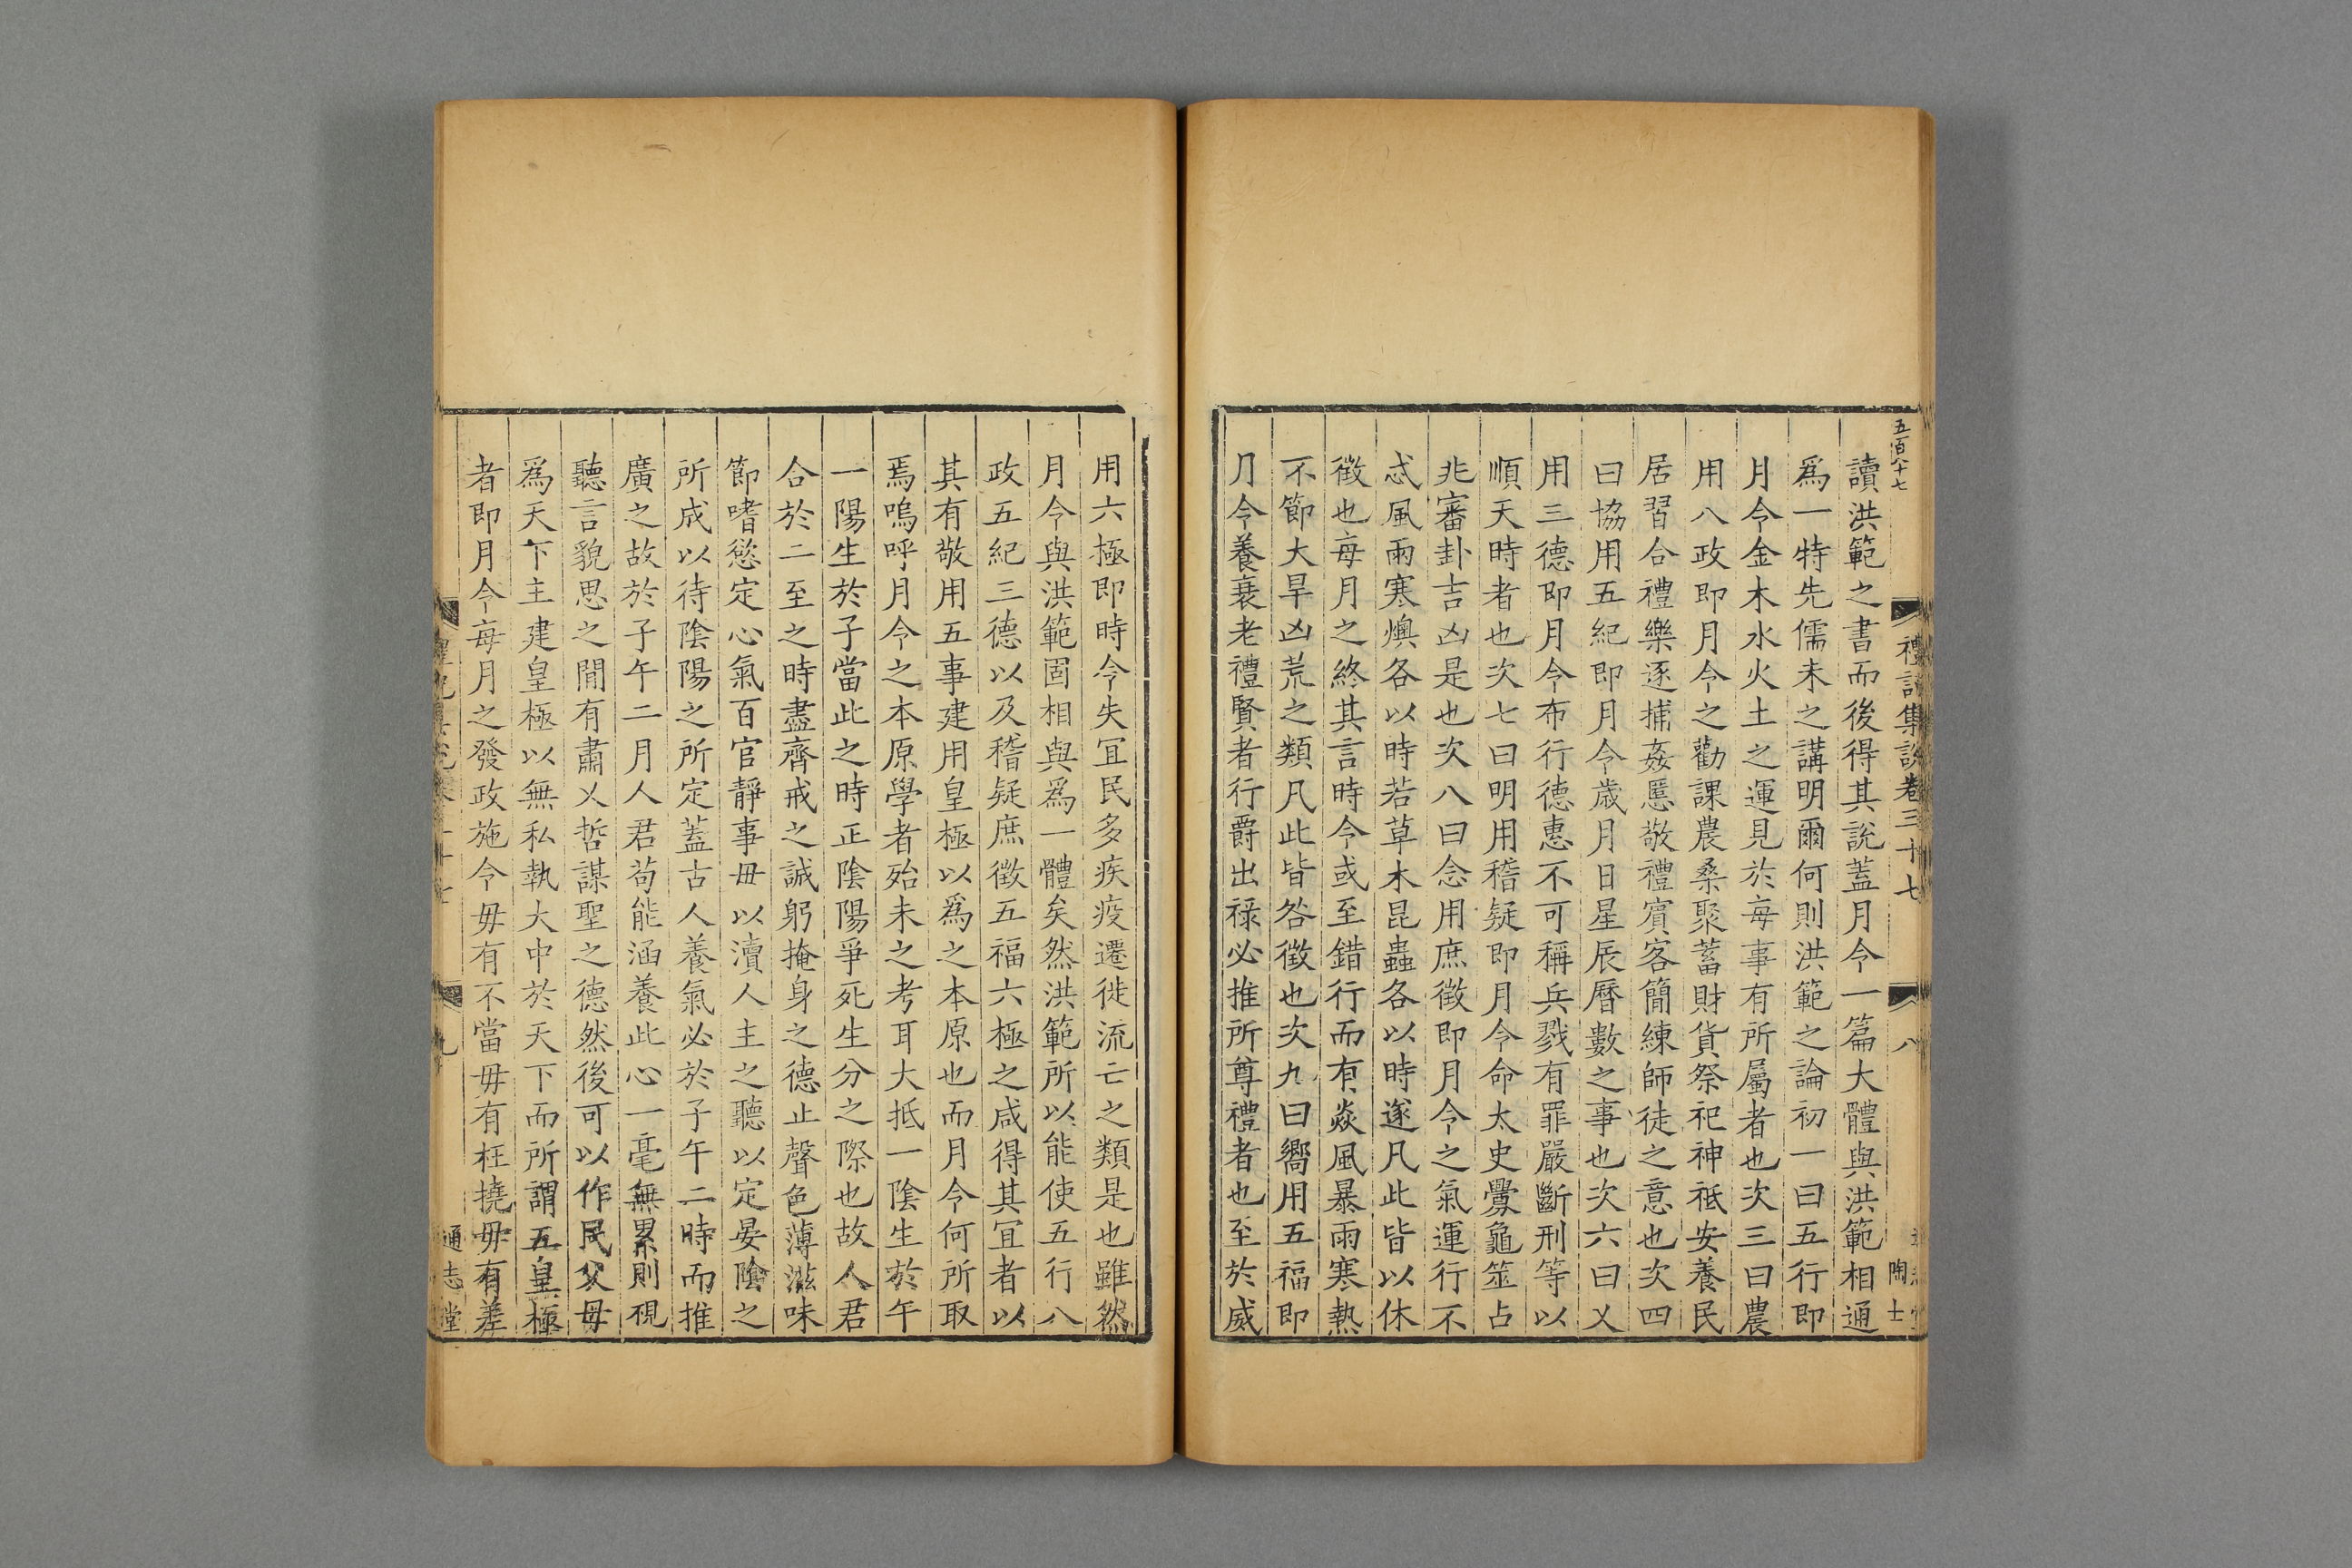 五百八十七
禮記集說卷三十七
八
陶士
讀洪範之書而後得其說蓋月令一篇大體與洪範相通
爲一特先儒未之講明爾何則洪範之論初一曰五行即
月令金木水火土之運見於每事有所屬者也次三曰農
用八政即月令之勸課農桑聚蓄財貨祭祀神祗安養民
居習合禮樂逐捕姦慝敬禮賓客簡練師徒之意也次四
曰協用五紀即月令歲月日星辰曆數之事也次六曰乂
用三德即月令布行德惠不可稱兵戮有罪嚴斷刑等以
順天時者也次七曰明用稽疑即月令命太史釁龜筮占
兆審卦吉凶是也次八曰念用庶徵即月令之氣運行不
忒風雨寒燠各以時若草木昆蟲各以時遂凡此皆以休
徵也每月之終其言時令或至錯行而有焱風暴雨寒熱
不節大旱凶荒之類凡此皆咎徵也次九曰嚮用五福即
月令養衰老禮賢者行爵出祿必推所尊禮者也至於威
用六極即時令失宜民多疾疫遷徙流亡之類是也雖然
月令與洪範固相與爲一體矣然洪範所以能使五行八
政五紀三德以及稽疑庶徵五福六極之咸得其宜者以
其有敬用五事建用皇極以爲之本原也而月令何所取
焉嗚呼月令之本原學者殆未之考耳大抵一陰生於午
一陽生於子當此之時正陰陽爭死生分之際也故人君
合於二至之時盡齊戒之誠躬掩身之德止聲色薄滋味
節嗜慾定心氣百官靜事毋以瀆人主之聽以定晏陰之
所成以待陰陽之所定蓋古人養氣必於子午二時而推
廣之故於子午二月人君苟能涵養此心一毫無累則視
聽言貌思之閒有肅乂哲謀聖之德然後可以作民父母
爲天下主建皇極以無私執大中於天下而所謂五皇極
者即月令每月之發政施令毋有不當毋有枉撓毋有差
九
通志堂